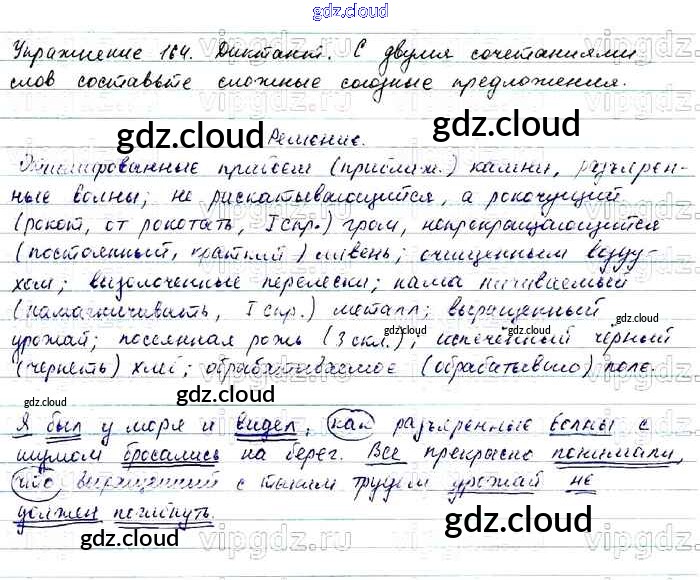 gdz.cloud
Упражнение 164. Диктант. С двумя сочетаниями
слов составьте сложные союзные предложения.
gdz.cloud gdz.cloud
Решение.
прибоем (приближ.) камни, разъярен-
ные волны; не рискатывающийся, а рокочущий
(рокот, от рокотать, I спр.) гром, непрекращающийся
(постоянный, краткий) ливень; очищенным возду-
хом; вызолоченные перелески; намагничиваемый
(намагничивать, I спр.) металл; выращенный
gdz.cloud
урожай; посеянная рожь (3 скл.); испечённый чёрный
gdz.cloud
(чернеть) хлеб; обрабатываемое (обрабатывало) поле.
gdz.cloud
gdz.cloud
Я был у моря и видел, как разъяренные волны с
шумом бросались на берег. Все прекрасно понимали,
что выращенный с таким трудом урожай не
должен погибнуть.
gdz.cloud
gdz.cloud gdz.cloud